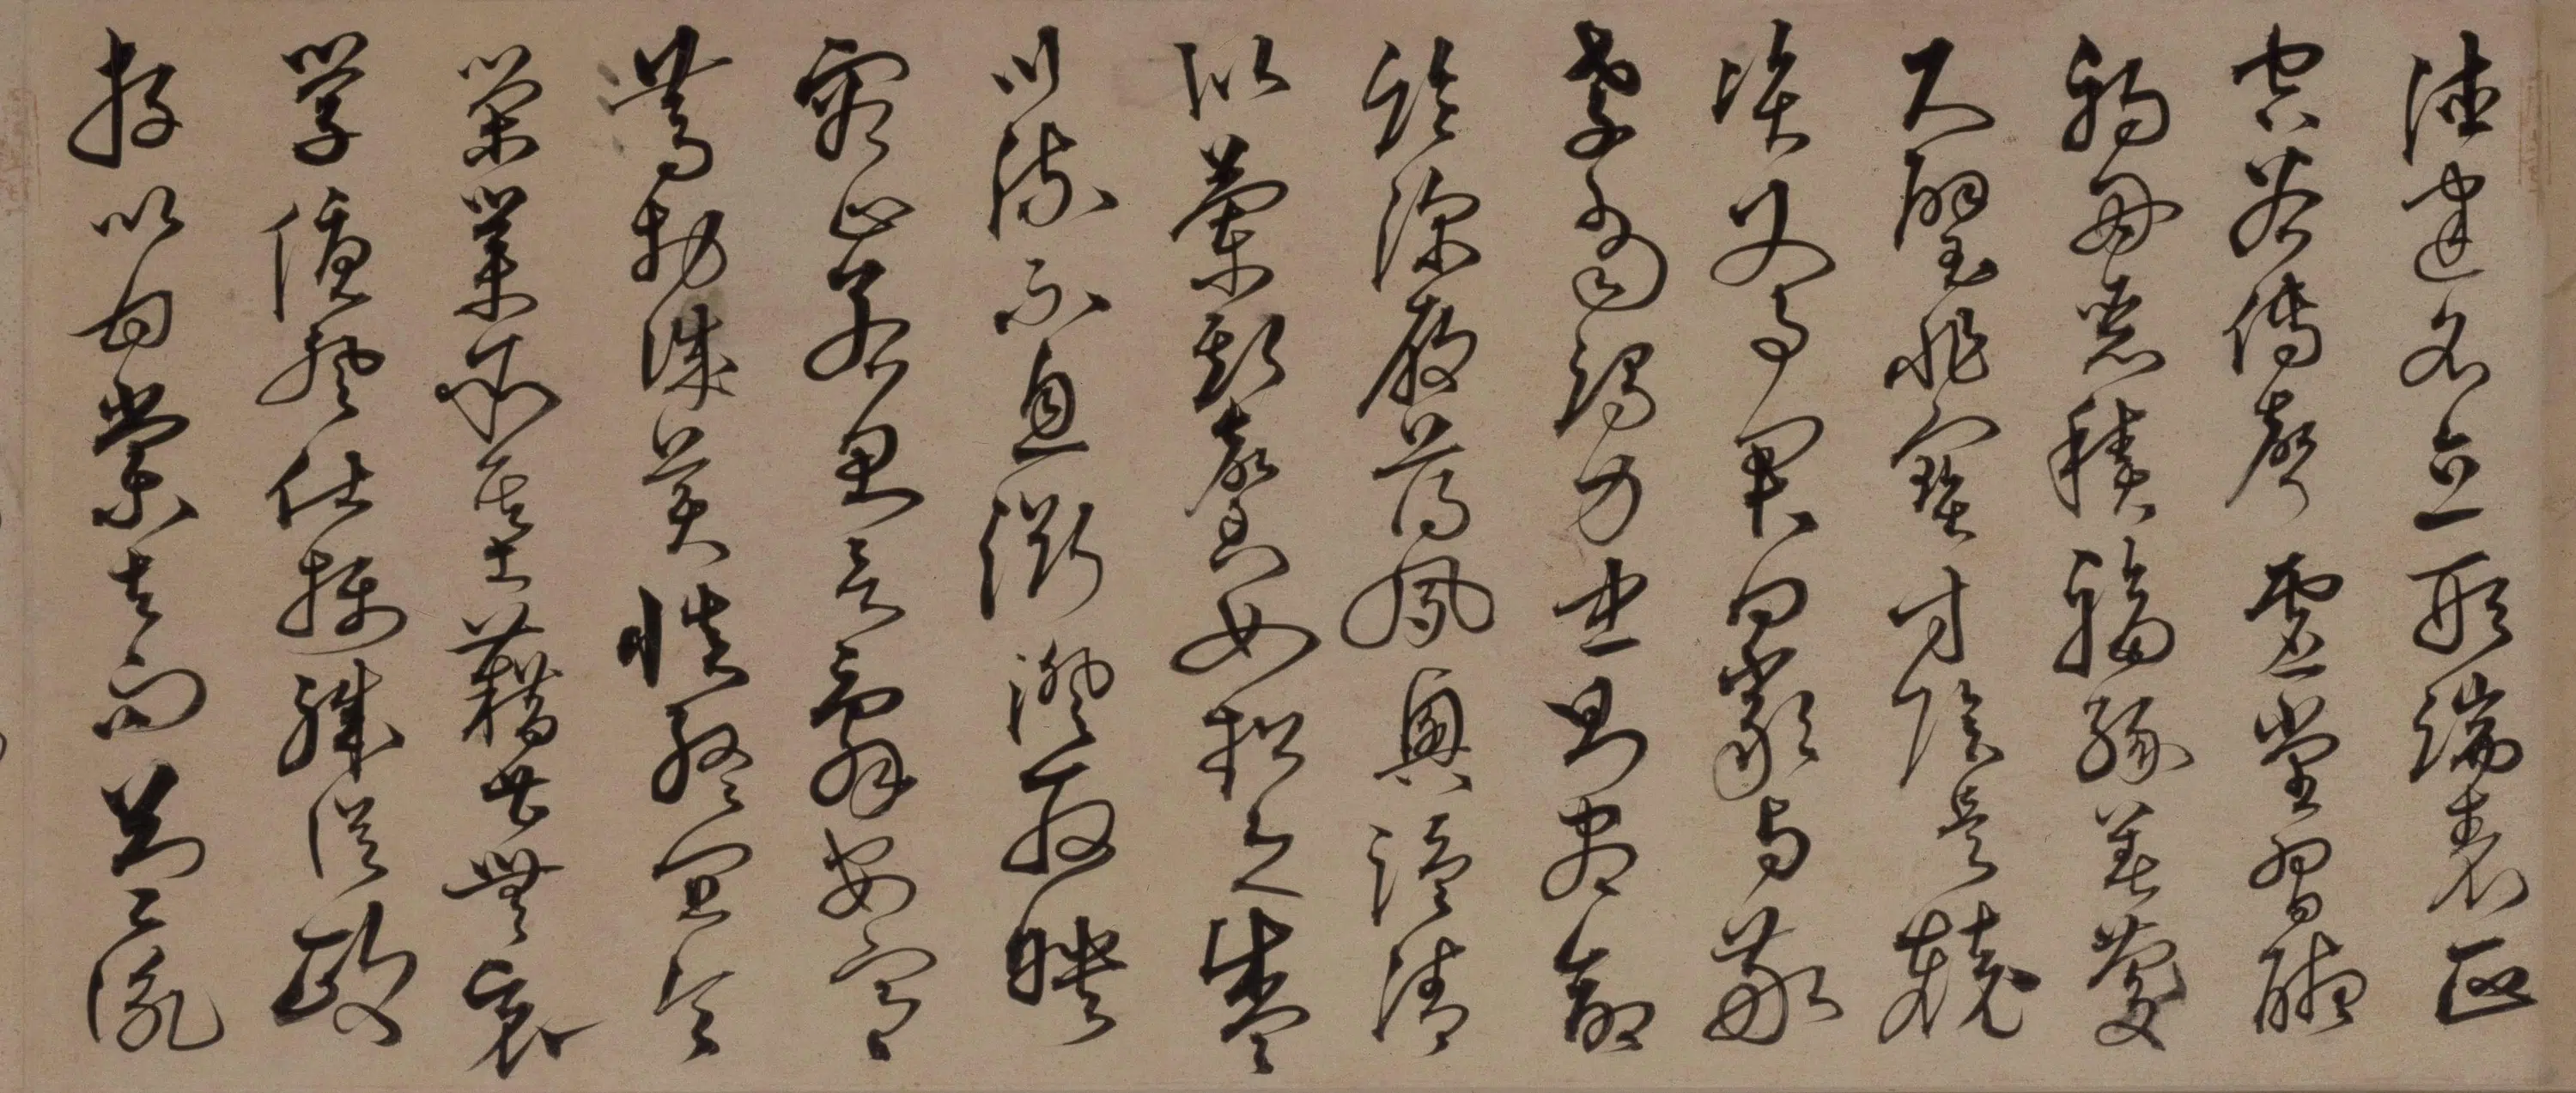 德建名立形端表正
空谷傳聲虛堂習聽
禍因惡積福緣善慶
尺璧非寶寸陰是競
資父事君曰嚴與敬
孝當竭力忠則盡命
臨深履薄夙興溫清
似蘭斯馨如松之盛
川流不息淵澄取映
容止若思言辭安定
篤初誠美慎終宜令
榮業所基藉甚無竟
學優登仕攝職從政
存以甘棠去而益詠